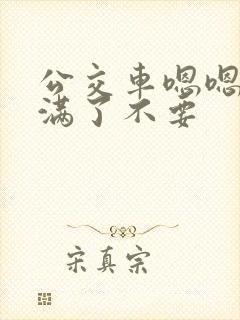 公交车嗯嗯
满了不要
宋真宗